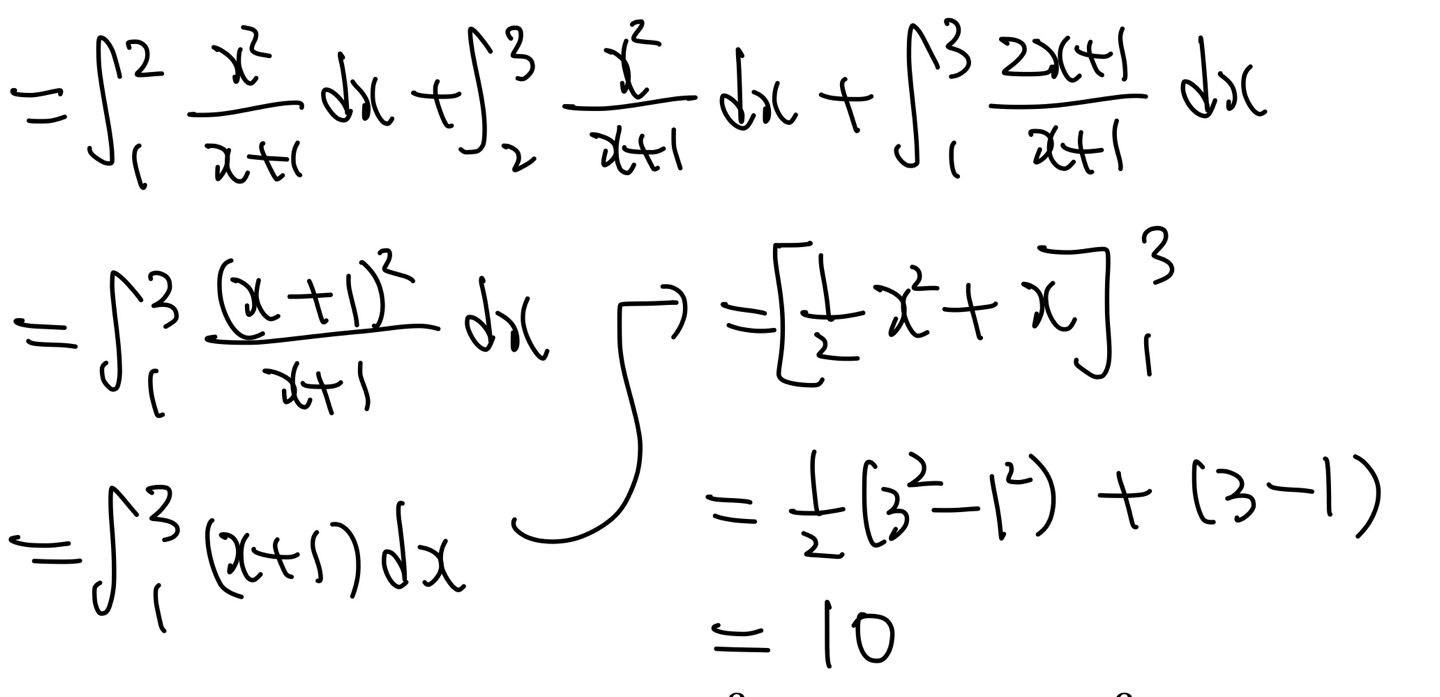 = ∫₁² x²/(x+1) dx + ∫₂³ x²/(x+1) dx + ∫₁³ (2x+1)/(x+1) dx
= ∫₁³ (x+1)²/(x+1) dx
= ∫₁³ (x+1) dx
= [1/2 x² + x]₁³
= 1/2 (3² - 1²) + (3 - 1)
= 10